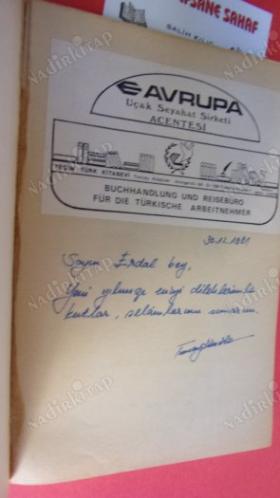 FSANE SAHAF
AVRUPA
Uçak Seyahat Şirketi
ACENTESİ
TEÇİN TÜRK KİTABEVİ
BUCHHANDLUNG UND REISEBÜRO
FÜR DIE TÜRKISCHE ARBEITNEHMER
30.12.1981
Sayın Erdal bey,
Yeni yılınızı en iyi dileklerimle
kutlar, selâmlarımı sunarım.
NADİRKİTAP